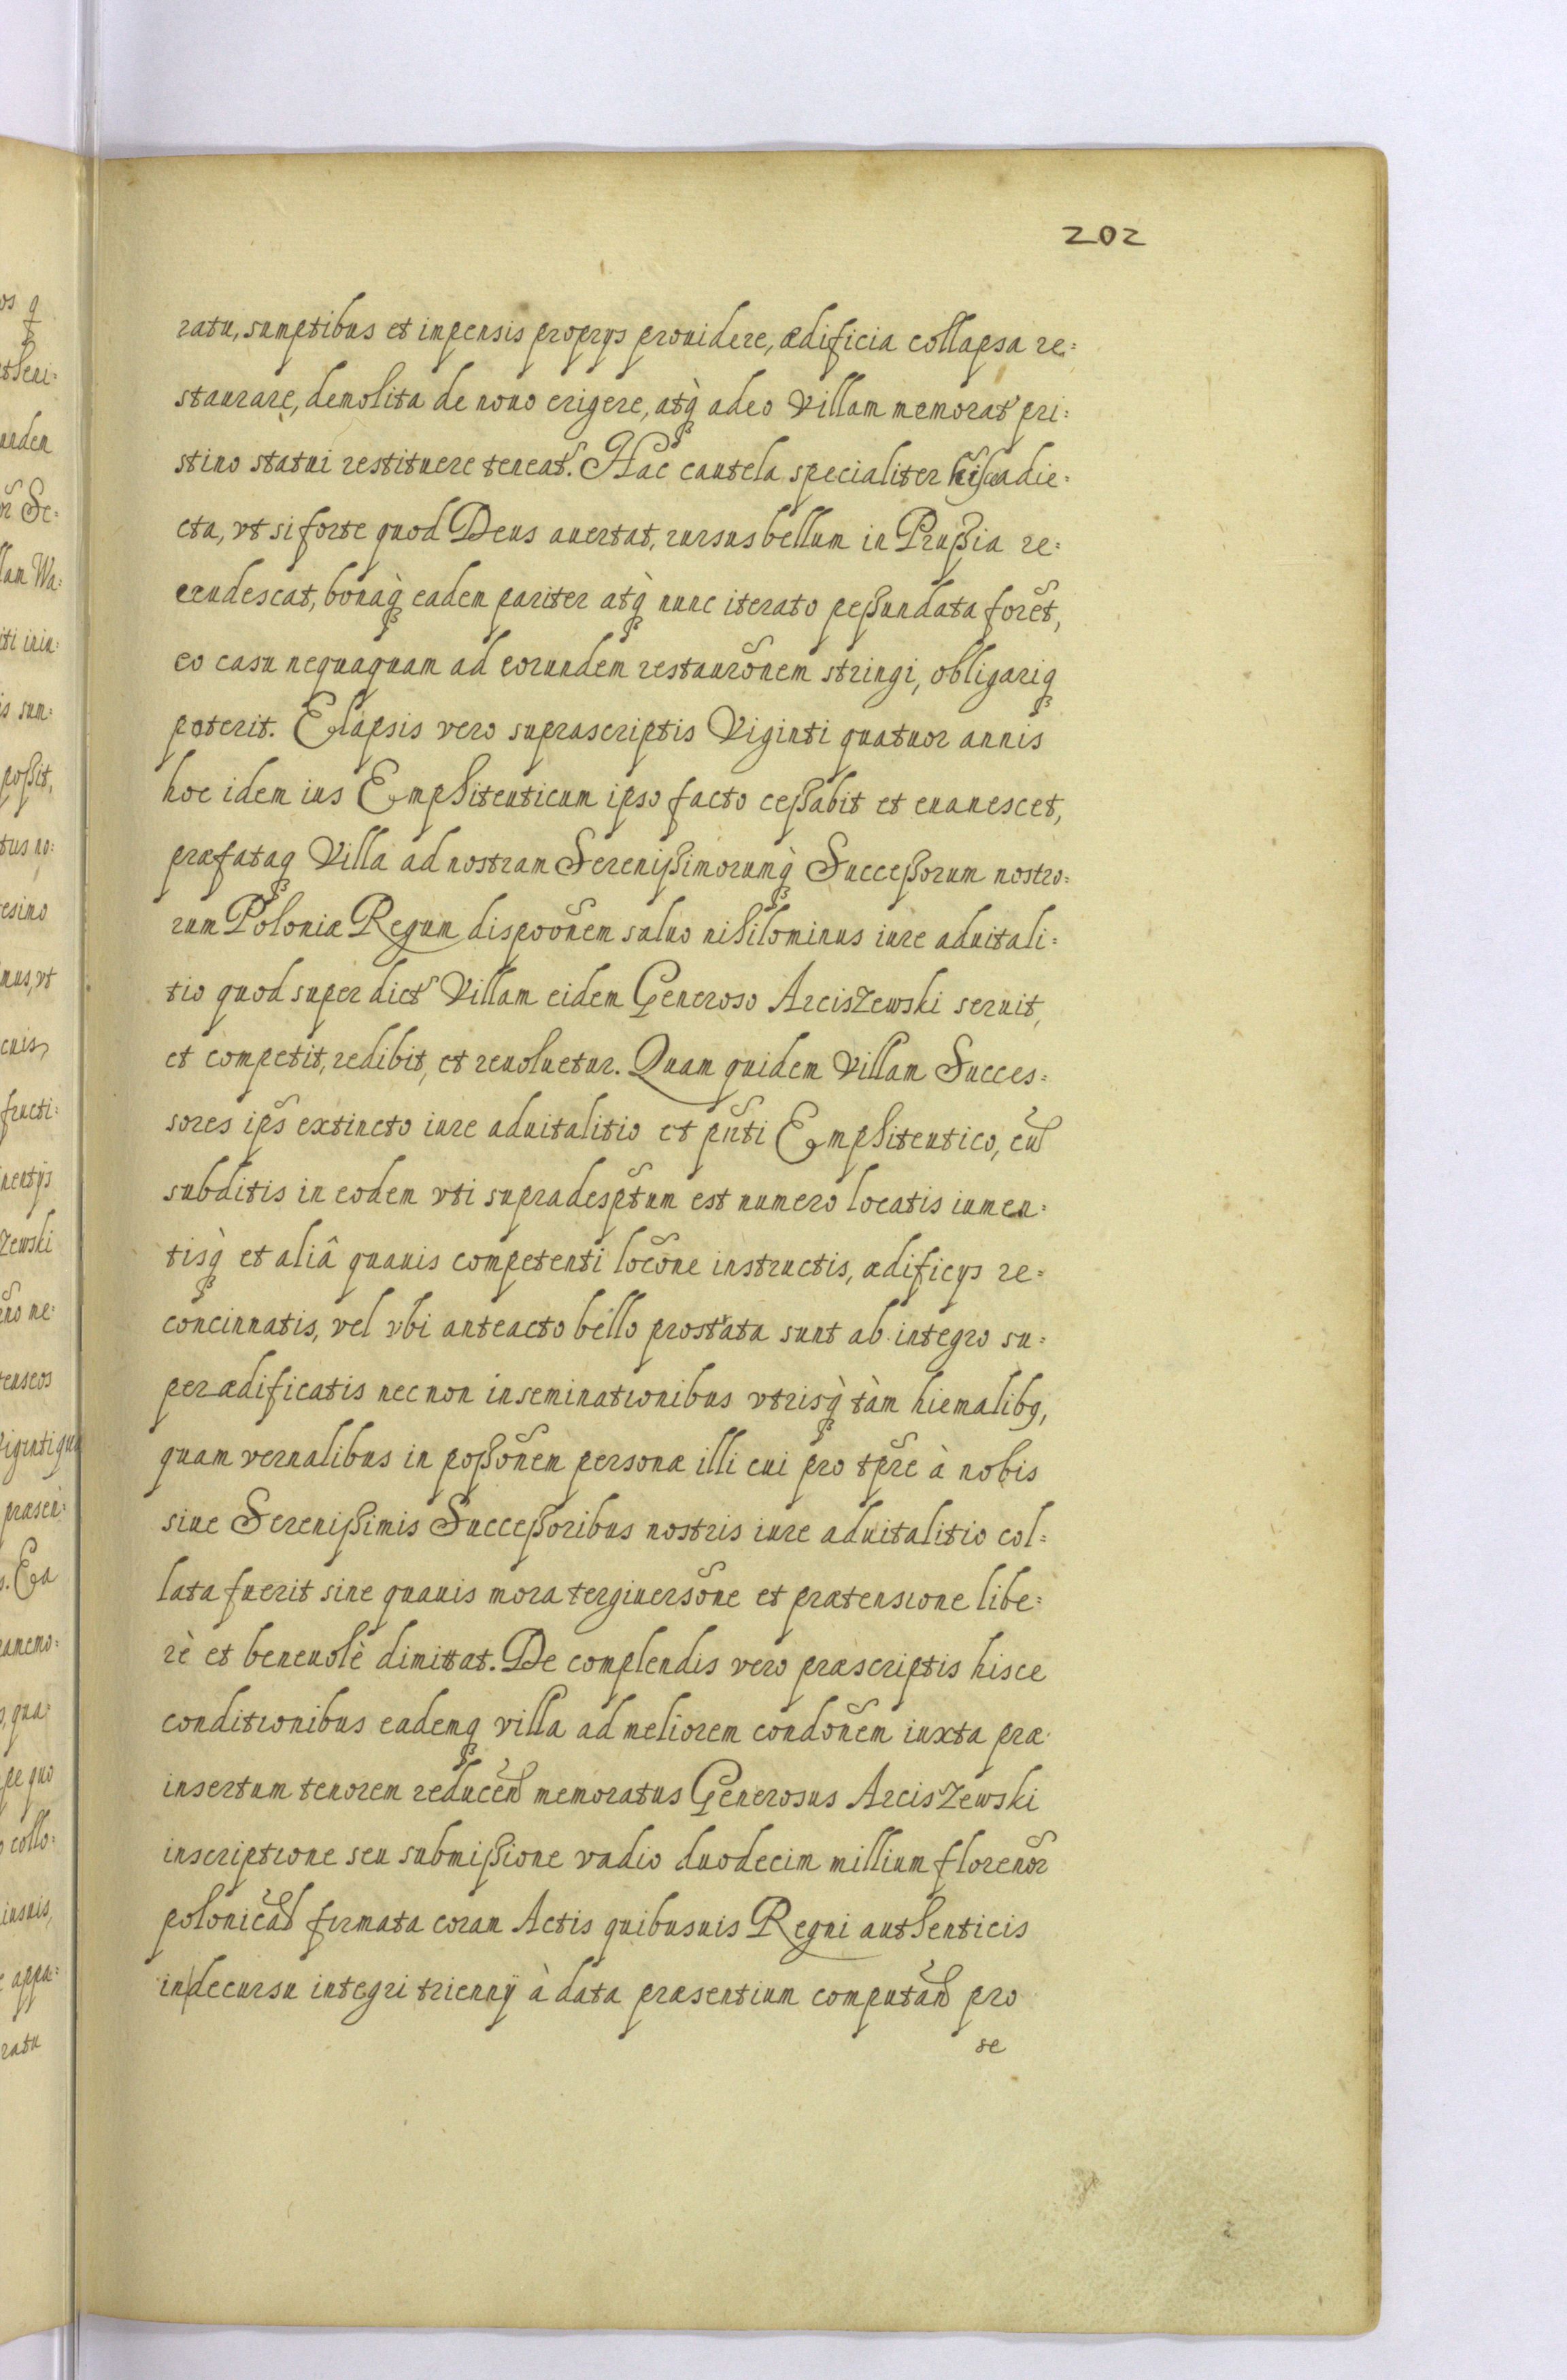 202
ratu, sumptibus et impensis proprys prouidere, ædificia collapsa re=
staurare, demolita de nouo erigere, atq̀ adeo Villam memorat̃ pri=
stino statui restituere teneat̃. Hac cautela specialiter hisce adie=
cta, vt si forte quod Deus auertat, rursus bellum in Prußia re=
crudescat, bonaq̀ eadem pariter atq̀ nunc iterato peßundata foret̃,
eo casu nequaquam ad eorundem restaurõnem stringi, obligariq
poterit. Elapsis vero suprascriptis Viginti quatuor annis
hoc idem ius Emphiteuticum ipso facto ceßabit et euanescet,
præfataq Villa ad nostram Serenißimorumq̀ Succeßorum nostro=
rum Poloniæ Regum dispoõnem saluo nihilominus iure aduitali=
tio quod super dict̃ Villam eidem Generoso Arciszewski seruit,
et competit, redibit, et reuoluetur. Quam quidem Villam Succes=
sores ips̃ extincto iure aduitalitio et pñti Emphiteutico, cũ
subditis in eodem vti supradesp̃tum est numero locatis iumen=
tisq̀ et aliâ quauis competenti locõne instructis, ædificys re=
concinnatis, vel vbi anteacto bello prostrata sunt ab integro su=
perædificatis nec non inseminationibus vtrisq̀ tàm hiemalibq,
quam vernalibus in poßõnem personæ illi cui pro tp̃re à nobis
siue Serenißimis Succeßoribus nostris iure aduitalitio col=
lata fuerit sine quauis mora tergiuersõne et prætensione libe=
rè et beneuolè dimittat. De complendis vero præscriptis hisce
conditionibus eademq villa ad meliorem condõnem iuxta præ=
insertum tenorem reduceñ memoratus Generosus Arciszewski
inscriptione seu submißione vadio duodecim millium florenor̃
polonical̃ firmata coram Actis quibusuis Regni authenticis
in decursu integri triennÿ à data præsentium computañ pro
se